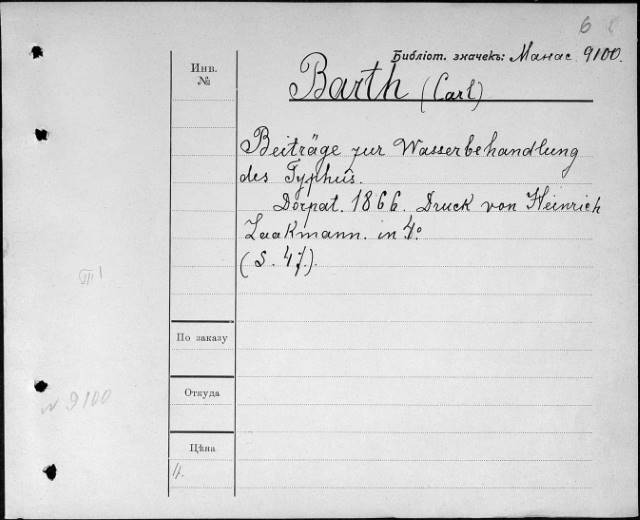 6
Библіот. значекъ: Манас. 9100.
Инв.
№
Barth (Carl)
Beiträge zur Wasserbehandlung
des Typhus.
Dorpat. 1866. Druck von Heinrich
Laakmann. in 4°
(S. 47).
III 1
По заказу
Откуда
№ 9100
Цѣна
4.